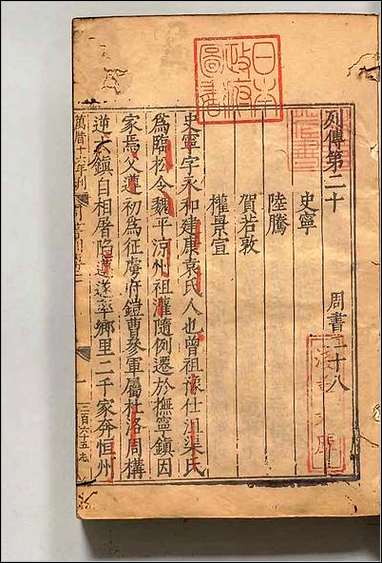 列傳第二十　周書二十八
史寧
陸騰
賀若敦
權景宣
史寧字永和建康袁氏人也曾祖豫仕沮渠氏
為臨松令魏平涼州祖灌隨例遷於撫寧鎮因
家焉父遵初為征虜府鎧曹參軍屬杜洛周構
逆六鎮自相屠陷遵遂率鄉里二千家奔恒州
萬曆十六年刊
二百六十五